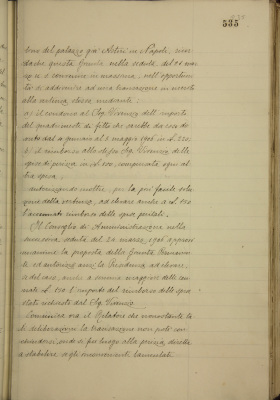 535
tivo del palazzo già Alifei in Napoli,
dachè questa Giunta, nella seduta del 21 mar
zo u. s. convenne in massima, nell'opportuni
tà di addivenire ad una transazione in merito
alla vertenza stessa mediante:
a) il condono al Sig. Vicenzo dell'importo
del quadrimestre di fitto che sarebbe da esso do
vuto dal 4 gennaio al 4 maggio 1906 in £
b) il rimborso allo stesso Sig. Vicenzo delle
spese di perizia in £ 500, compensata ogni al
tra spesa;
autorizzando inoltre, per la più facile solu
zione della vertenza, ad elevare anche a £
l'accennato rimborso delle spese peritali.
Il Consiglio di Amministrazione nella
successiva seduta del 24 marzo 1906 approvò
unanime la proposta della Giunta Permanen
te ed autorizzò anzi la Presidenza ad elevare,
a del caso, anche a somma maggiore delle
cennate £ l'importo del rimborso delle spese
state richieste dal Sig. Vicenzo.
Comunica ora il Relatore che nonostante ta
le deliberazione la transazione non potè con
cludersi, onde si fece luogo alla perizia, diretta
a stabilire se gli inconvenienti lamentati